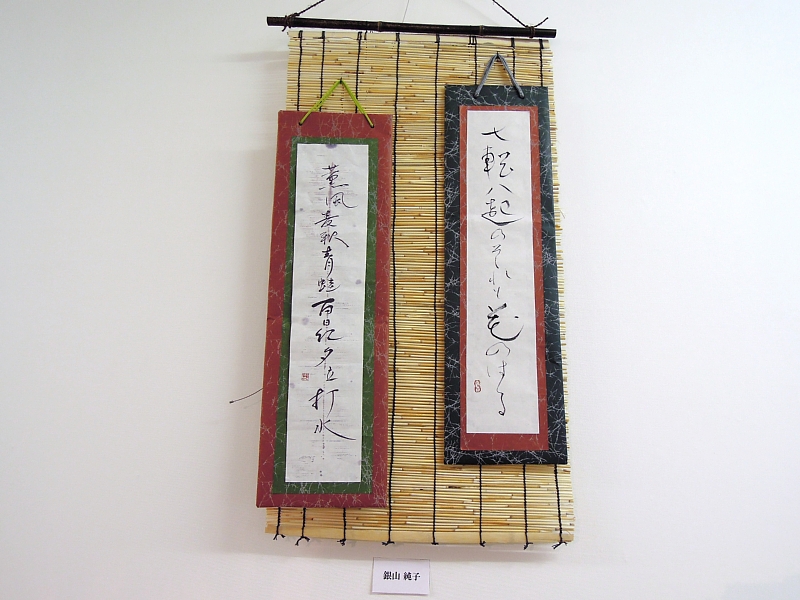 七転八起のそれも花のはる
薫風麦秋青蛙百日紅夕立打水
銀山 純子